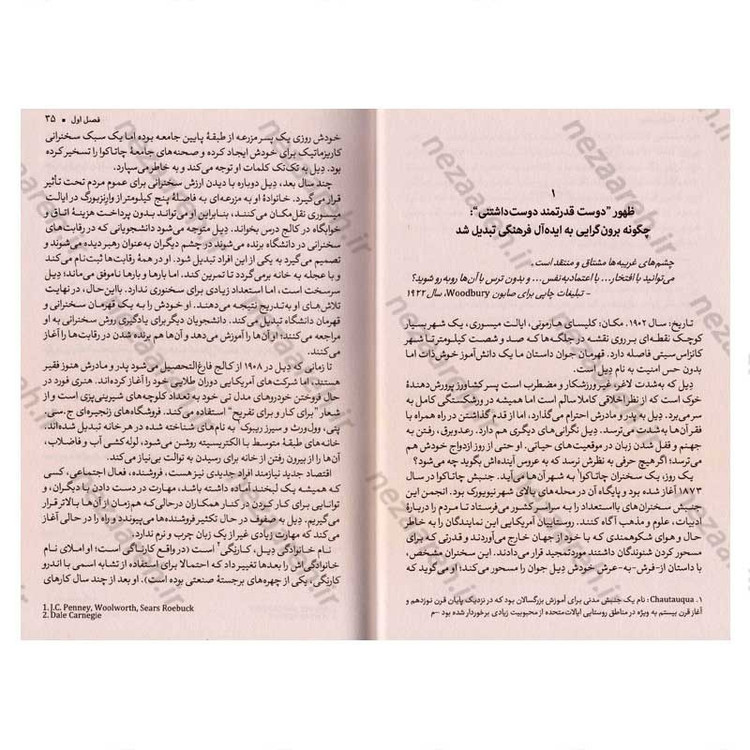 ۱
ظهور "دوست قدرتمند دوست‌داشتنی":
چگونه برون‌گرایی به ایده‌آل فرهنگی تبدیل شد
چشم‌های غریبه‌ها مشتاق و منتقد است.
می‌توانید با افتخار... با اعتمادبه‌نفس... و بدون ترس با آن‌ها روبه‌رو شوید؟
- تبلیغات چاپی برای صابون Woodbury، سال ۱۹۲۲
تاریخ: سال ۱۹۰۲. مکان: کلیسای هارمونی، ایالت میسوری، یک شهر بسیار
کوچک نقطه‌ای بر روی نقشه در جلگه‌ها که صد و شصت کیلومتر تا شهر
کانزاس‌سیتی فاصله دارد. قهرمان جوان داستان ما یک دانش‌آموز خوش‌ذات اما
بدون حس امنیت به نام دِیل است.
دِیل که به‌شدت لاغر، غیرورزشکار و مضطرب است پسر کشاورز پرورش‌دهندهٔ
خوک است که از نظر اخلاقی کاملا سالم است اما همیشه در ورشکستگی کامل به
سر می‌برد. دِیل به پدر و مادرش احترام می‌گذارد، اما از قدم گذاشتن در راه همراه با
فقر آن‌ها به‌شدت می‌ترسد. دِیل نگرانی‌های دیگری هم دارد. رعدوبرق، رفتن به
جهنم و قفل شدن زبان در موقعیت‌های حیاتی. او حتی از روز ازدواج خودش هم
می‌ترسد؛ اگر هیچ حرفی به نظرش نرسد که به عروس آینده‌اش بگوید چه می‌شود؟
یک روز، یک سخنران چاتاکوا۱ به شهر آن‌ها می‌آید. جنبش چاتاکوا در سال
۱۸۷۳ آغاز شده بود و پایگاه آن در محله‌های بالای شهر نیویورک بود. انجمن این
جنبش سخنران‌های بااستعداد را به سراسر کشور می‌فرستاد تا مردم را دربارهٔ
ادبیات، علوم و مذهب آگاه کنند. روستاییان آمریکایی این نمایندگان را به خاطر
حال و هوای شکوهمندی که با خود از جهان خارج می‌آوردند و قدرتی که برای
مسحور کردن شنوندگان داشتند مورد تمجید قرار می‌دادند. این سخنران مشخص،
با داستان از-فرش-به-عرش خودش دِیل جوان را مسحور می‌کند؛ او می‌گوید که
۱. Chautauqua: نام یک جنبش مدنی برای آموزش بزرگسالان بود که در نزدیک پایان قرن نوزدهم و
آغاز قرن بیستم به ویژه در مناطق روستایی ایالات‌متحده از محبوبیت زیادی برخوردار شده بود -م
فصل اول ▪ ۳۵
خودش روزی یک پسر مزرعه از طبقهٔ پایین جامعه بوده اما یک سبک سخنرانی
کاریزماتیک برای خودش ایجاد کرده و صحنه‌های جامعهٔ چاتاکوا را تسخیر کرده
بود. دِیل به تک‌تک کلمات او توجه می‌کند و به خاطر می‌سپارد.
چند سال بعد، دِیل دوباره با دیدن ارزش سخنرانی برای عموم مردم تحت تأثیر
قرار می‌گیرد. خانوادهٔ او به مزرعه‌ای به فاصلهٔ پنج کیلومتر از وارنزبورگ در ایالت
میسوری نقل‌مکان می‌کنند، بنابراین او می‌تواند بدون پرداخت هزینهٔ اتاق و
خوابگاه در کالج درس بخواند. دِیل متوجه می‌شود دانشجویانی که در رقابت‌های
سخنرانی در دانشگاه برنده می‌شوند در چشم دیگران به‌عنوان رهبر دیده می‌شوند و
تصمیم می‌گیرد به یکی از این افراد تبدیل شود. او در همهٔ رقابت‌ها ثبت‌نام می‌کند
و با عجله به خانه برمی‌گردد تا تمرین کند. اما بارها و بارها ناموفق می‌ماند؛ دِیل
سرسخت است، اما استعداد زیادی برای سخنوری ندارد. بااین‌حال، در نهایت
تلاش‌های او به‌تدریج نتیجه می‌دهند. او خودش را به یک قهرمان سخنرانی و
قهرمان دانشگاه تبدیل می‌کند. دانشجویان دیگر برای یادگیری روش سخنرانی به او
مراجعه می‌کنند؛ او آن‌ها را آموزش می‌دهد و آن‌ها هم برنده شدن در رقابت‌ها را آغاز
می‌کنند.
تا زمانی که دِیل در ۱۹۰۸ از کالج فارغ‌التحصیل می‌شود پدر و مادرش هنوز فقیر
هستند، اما شرکت‌های آمریکایی دوران طلایی خود را آغاز کرده‌اند. هنری فورد در
حال فروختن خودروهای مدل تی خود به تعداد کلوچه‌های شیرینی‌پزی است و از
شعار "برای کار و برای تفریح" استفاده می‌کند. فروشگاه‌های زنجیره‌ای ج.سی.
پنی، وول‌ورث و سیرز ریبوک۱ به نام‌های شناخته شده در هر خانه تبدیل شده‌اند.
خانه‌های طبقهٔ متوسط با الکتریسیته روشن می‌شود، لوله‌کشی آب و فاضلاب،
آن‌ها را از بیرون رفتن از خانه برای رسیدن به توالت بی‌نیاز می‌کند.
اقتصاد جدید نیازمند افراد جدیدی نیز هست، فروشنده، فعال اجتماعی، کسی
که همیشه یک لبخند آماده داشته باشد، مهارت در دست دادن با دیگران، و
توانایی برای کار کردن در کنار همکاران درحالی‌که هم‌زمان از آن‌ها بالاتر قرار
می‌گیریم. دِیل به صفوف در حال تکثیر فروشنده‌ها می‌پیوندد و راه را در حالی آغاز
می‌کند که مهارت زیادی غیر از یک زبان چرب و نرم ندارد.
نام خانوادگی دِیل، کارنگی۲ است (در واقع کارناگی است؛ او املای نام
خانوادگی‌اش را بعدها تغییر داد که احتمالا برای استفاده از تشابه اسمی با اندرو
کارنگی، یکی از چهره‌های برجستهٔ صنعتی بوده است). او بعد از چند سال کارهای
1. J.C. Penney, Woolworth, Sears Roebuck
2. Dale Carnegie
nezaareh.ir